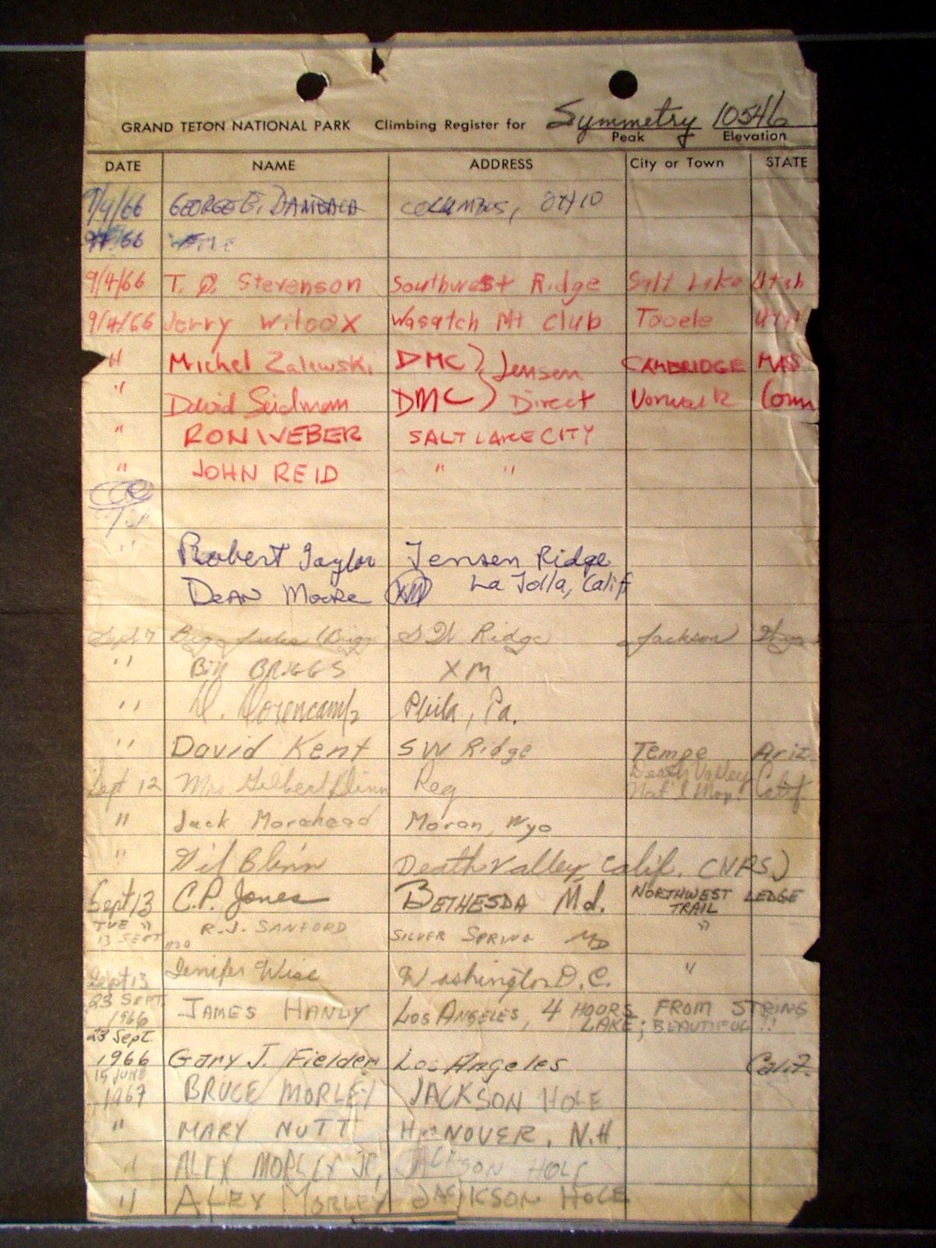 GRAND TETON NATIONAL PARK Climbing Register for Symmetry 10546
Peak Elevation
DATE NAME ADDRESS City or Town STATE
9/4/66 GEORGE COLUMBUS, OHIO
66
9/4/66 T. Stevenson Southwest Ridge Salt Lake Utah
9/4/66 Jerry Wilcox Wasatch Mt Club Tooele
" Michel Zalewski DMC } Jensen CAMBRIDGE MAS
" David Seidman DMC } Direct Conn
" RON WEBER SALT LAKE CITY
" JOHN REID " "
" Robert Taylor Jensen Ridge
DEAN Moore La Jolla, Calif
Sept 7 SW Ridge Jackson
" Bill BRIGGS XM
" D. Dorencamp Phila, Pa.
" David Kent SW Ridge Tempe Ariz.
Death Valley
Sept 12 Mrs. Gilbert Blinn Reg Nat'l Mon. Calif
" Jack Morehead Moran, Wyo
" Gil Blinn Death Valley, Calif. (NPS)
Sept 13 C.P. Jones BETHESDA Md. NORTHWEST LEDGE
TRAIL
TUE "
13 SEPT R.J. SANFORD SILVER SPRING MD "
Sept 13 Jenifer Wise Washington D.C. "
23 SEPT
1966 JAMES HANDY LOS ANGELES, 4 HOURS FROM STRING
LAKE; BEAUTIFUL!!
23 Sept.
1966 Gary J. Fielder Los Angeles Calif.
15 JUNE
1967 BRUCE MORLEY JACKSON HOLE
" MARY NUTT HANOVER, N.H.
" ALEX MORLEY JR, JACKSON HOLE
" ALEX MORLEY JACKSON HOLE